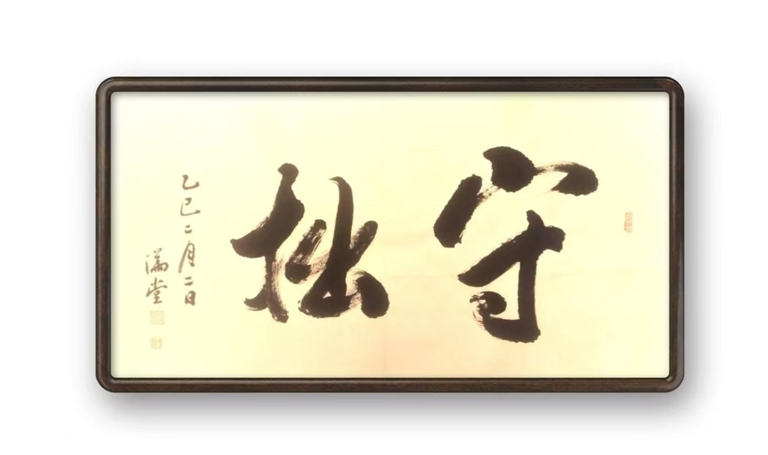 守拙
乙巳二月二日
滿堂